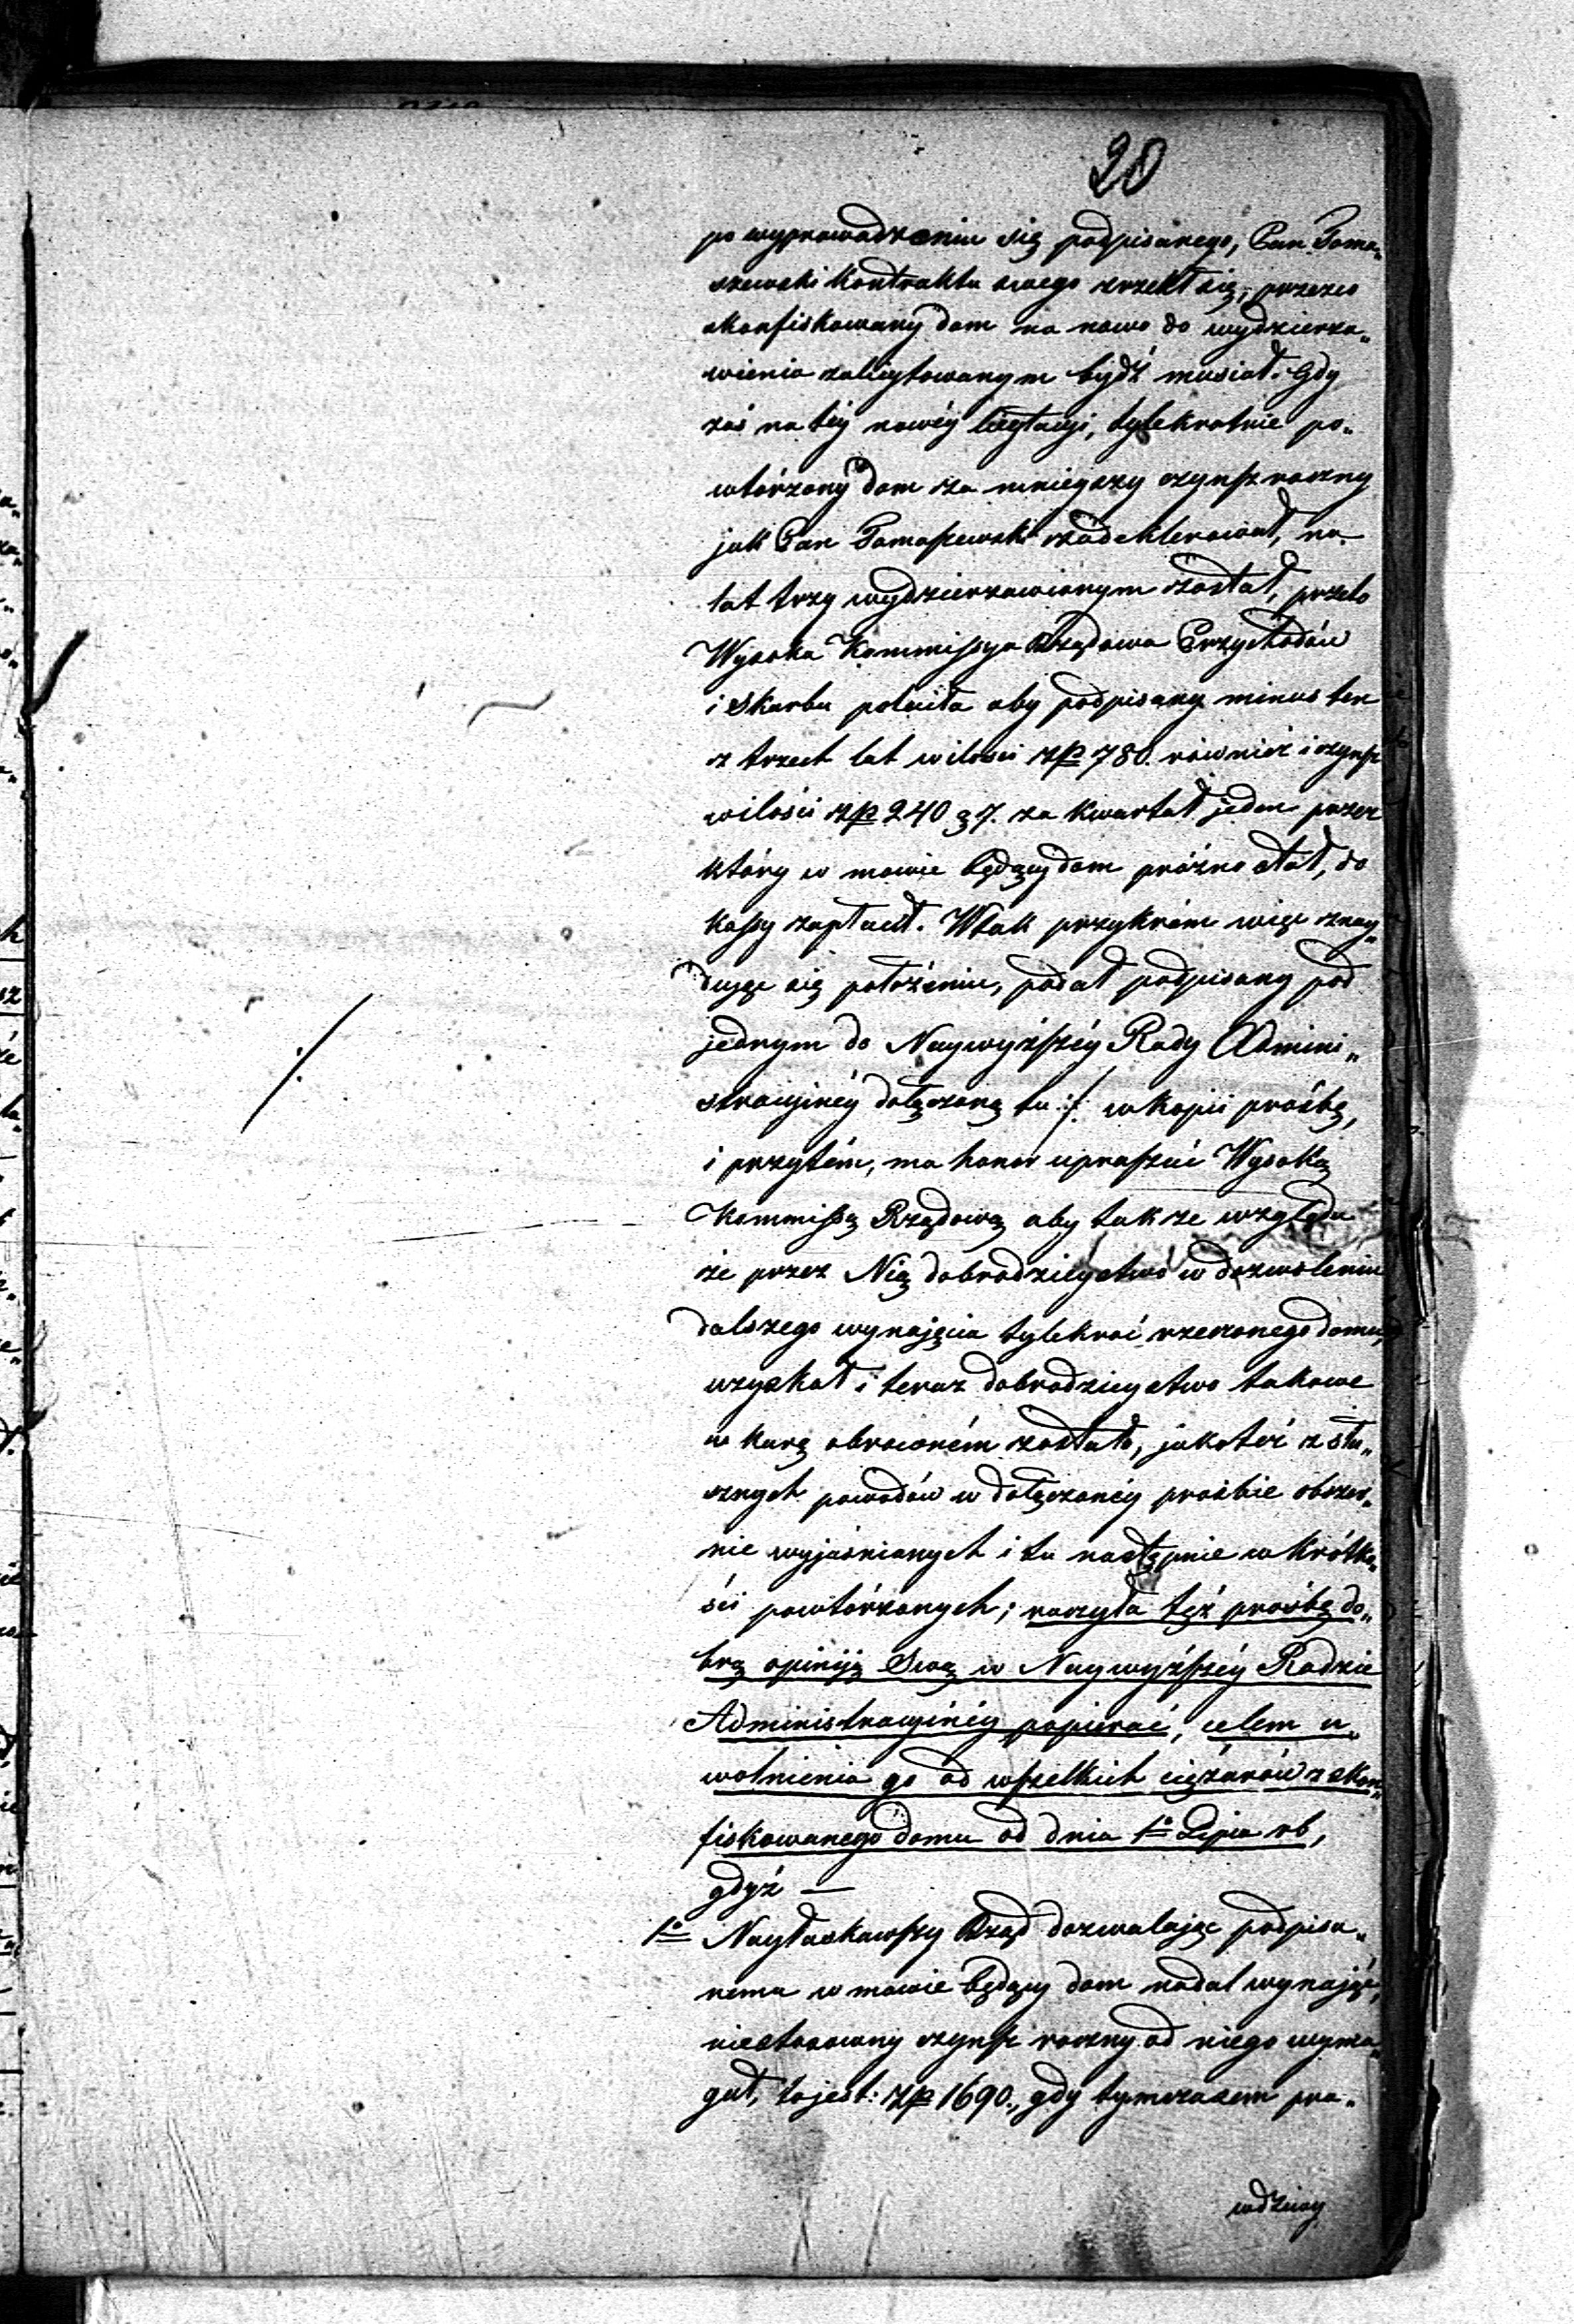 20
po wyprowadzeniu się podpisanego, Pan Toma„
szewski kontraktu swego zrzekł się, przezco
skonfiskowany dom na nowo do wydzierza„
wienia zalicytowanym bydź musiał. Gdy
zaś na téy nowéy licytacyi, tylekrotnie po„
wtórzony dom za mnieyszy czynsz roczny
jak Pan Tomaszewski zadeklerował, na
lat trzy wydzierzawionym został, przeto
Wysoka Kommissya Rządowa Przychodów
i Skarbu poleciła aby podpisany minus ten
z trzech lat w ilości zp 780. również i czynsz
w ilości zp 240 g 7. za kwartał jeden przez
który w mowie będący dom próżno stał, do
kassy zapłacił. W tak przykrém więc znay„
dując się położeniu, podał podpisany pod
jednym do Naywyższéy Rady Admini„
stracyinéy dołączoną tu ·/. w kopii prośbę,
·/.
i przytém, ma honor upraszać Wysoką
Kommissę Rządową aby tak ze względu
że przez Nią dobrodzieystwo w dozwoleniu
dalszego wynajęcia tylekroć rzeczonego domu,
uzyskał i teraz dobrodzieystwo takowe
w karę obrocném zostało, jakoteż z słu„
sznych powodów w dołączonéy prośbie obszer„
nie wyjaśnionych i tu następnie w krótko„
ści powtórzonych; raczyła téż prośbę do„
brą opiniją Swą w Naywyższéy Radzie
Administracyinéy popierać, celem u„
wolnienia go od wszelkich ciężarów z skon„
fiskowanego domu od dnia 1º Lipca rb,
gdyż —
1º Nayłaskawszy Rząd dozwalając podpisa„
nemu w mowie będący dom nadal wynająć,
niestosowny czynsz roczny od niego wyma„
gał, to jest: zp 1690., gdy tymczasem pra„
wdziwy